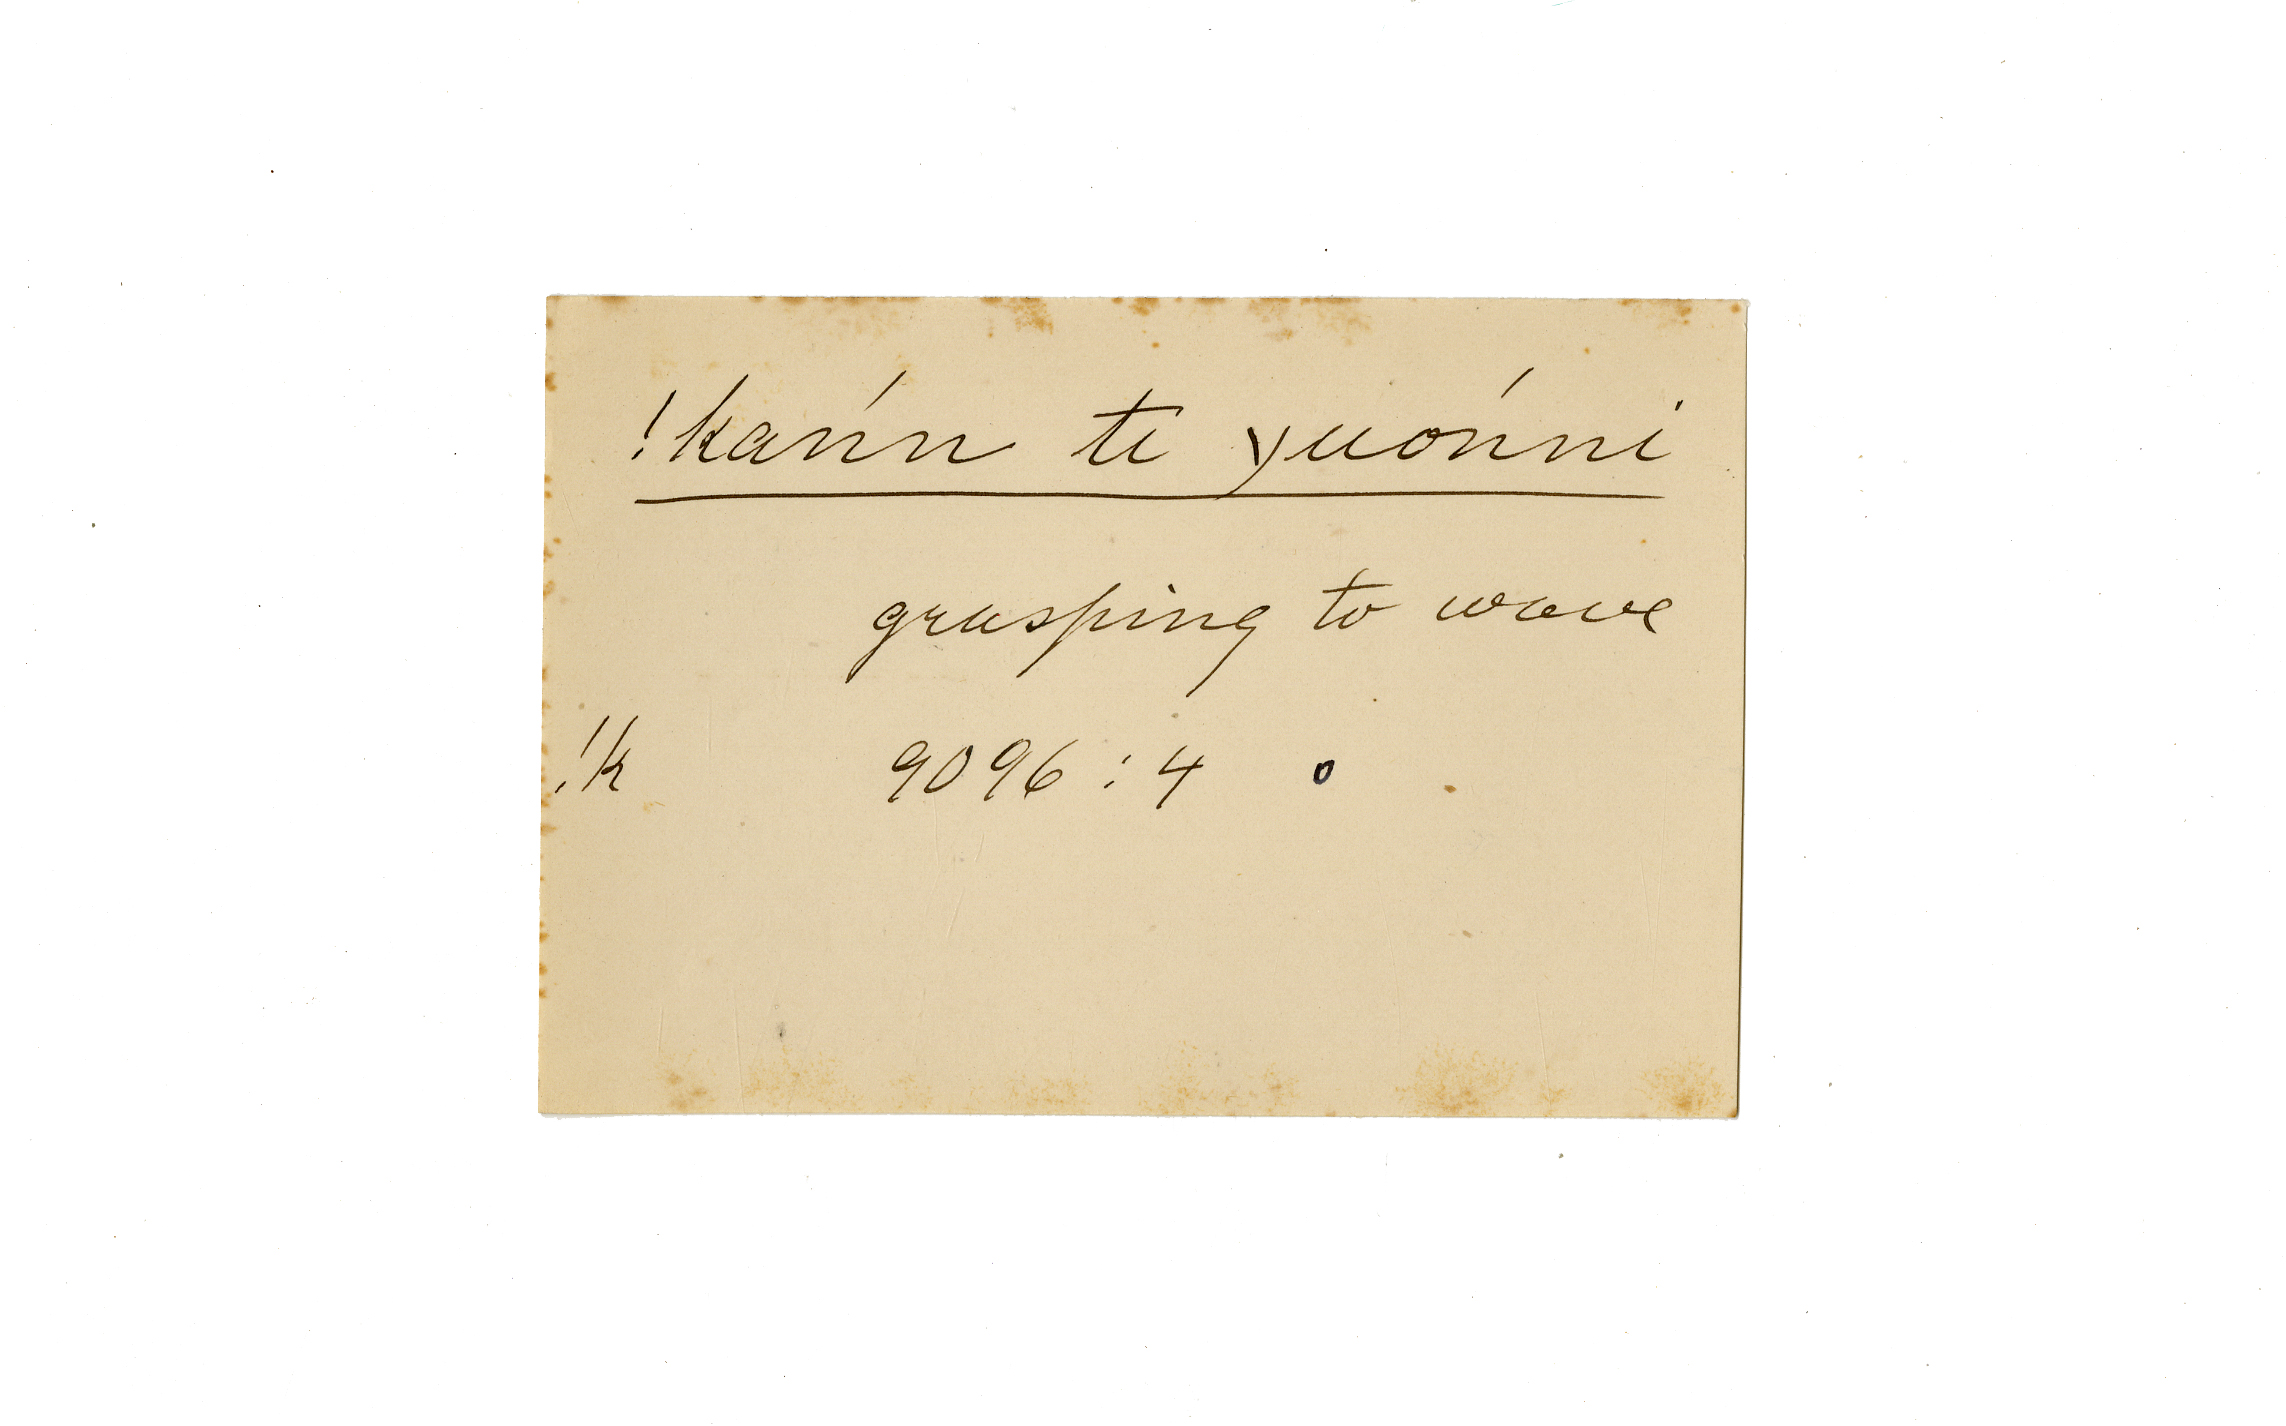 !kańn te yuónni
grasping to wave
!k 9096 : 4 o